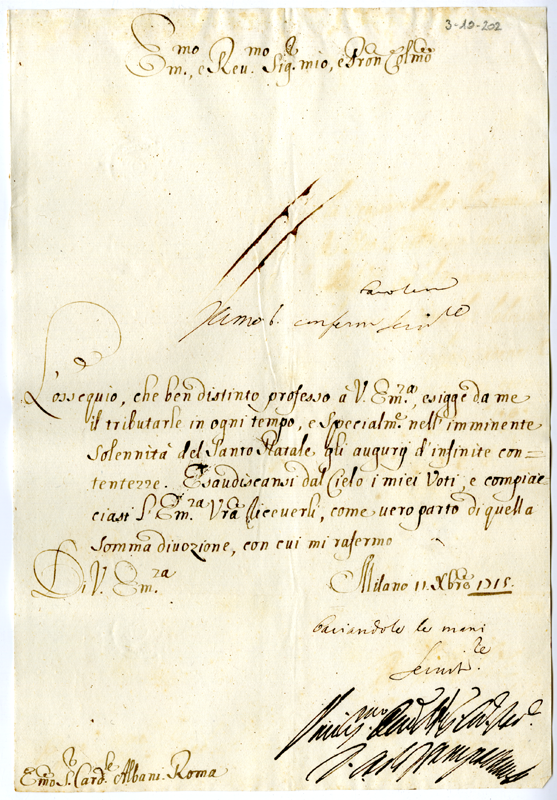 3-10-202
Em.mo, e Reu.mo Sig.r mio, e Pron Colmo
L'ossequio, che ben distinto professo à V. Em.za, esigge da me
il tributarle in ogni tempo, e specialm.te nell'imminente
solennità del Santo Natale gli augurÿ d'infinite con=
tentezze. Esaudiscansi dal Cielo i miei Voti, e compiac=
ciasi l'Em.za Vra riceuerli, come uero parto di quella
somma diuozione, con cui mi rafermo
Di V. Em.za
Milano 11 Xbre 1715.
baciandole le mani
Emo S.r Card.le Albani Roma